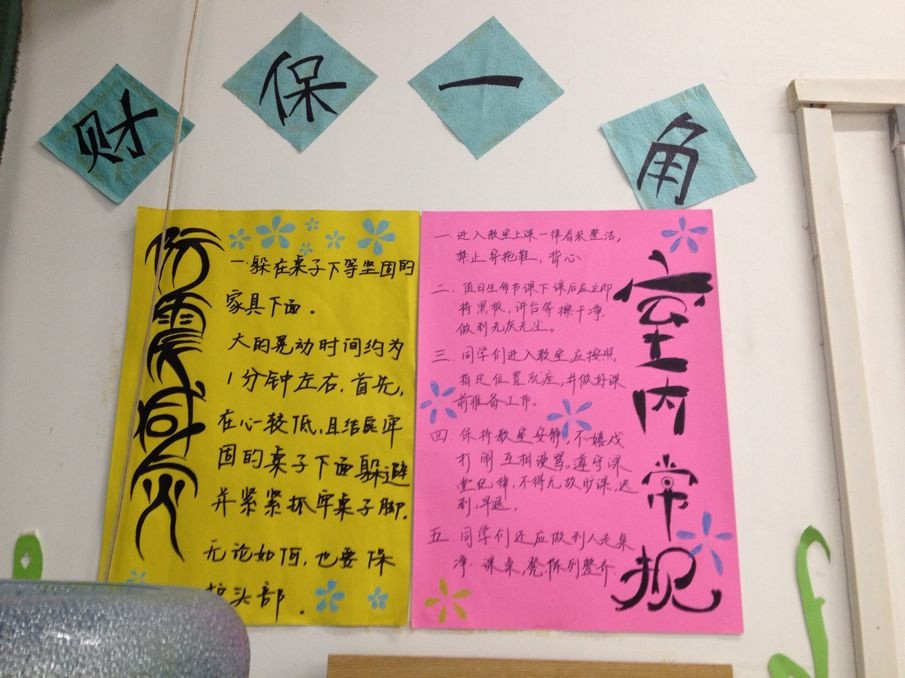 财保一角
防震减灾
一.躲在桌子下等坚固的
家具下面。
大的晃动时间约为
1分钟左右.首先,
在心较低,且结实牢
固的桌子下面躲避
并紧紧抓牢桌子脚.
无论如何,也要保
护头部.
室内常规
一.进入教室上课一律着装整洁,
禁止穿拖鞋、背心
二、值日生每节课下课后应立即
将黑板,讲台等擦干净,
做到无灰无尘。
三.同学们进入教室,应按照
指定位置就座,并做好课
前准备工作。
四.保持教室安静,不嬉戏
打闹互相谩骂。遵守课
堂纪律,不得无故课,迟
到,早退.
五.同学们还应做到人走桌
净.课桌,凳陈列整齐.